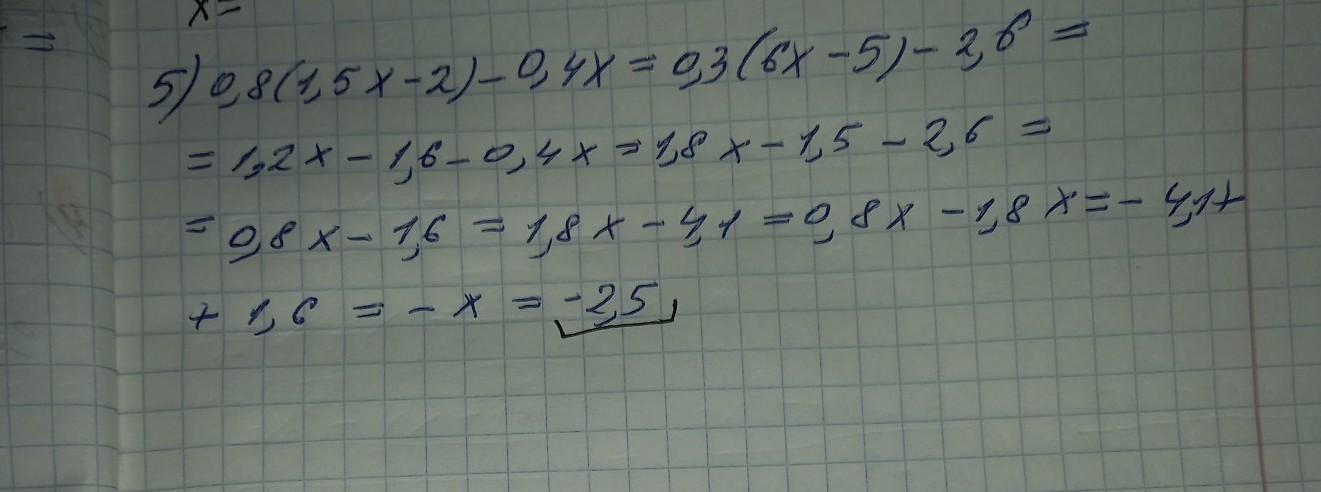 x=
=
5) 0,8(1,5x-2)-0,4x=0,3(6x-5)-2,6=
=1,2x-1,6-0,4x=1,8x-1,5-2,6=
=0,8x-1,6=1,8x-4,1=0,8x-1,8x=-4,1+
+1,6=-x=-2,5